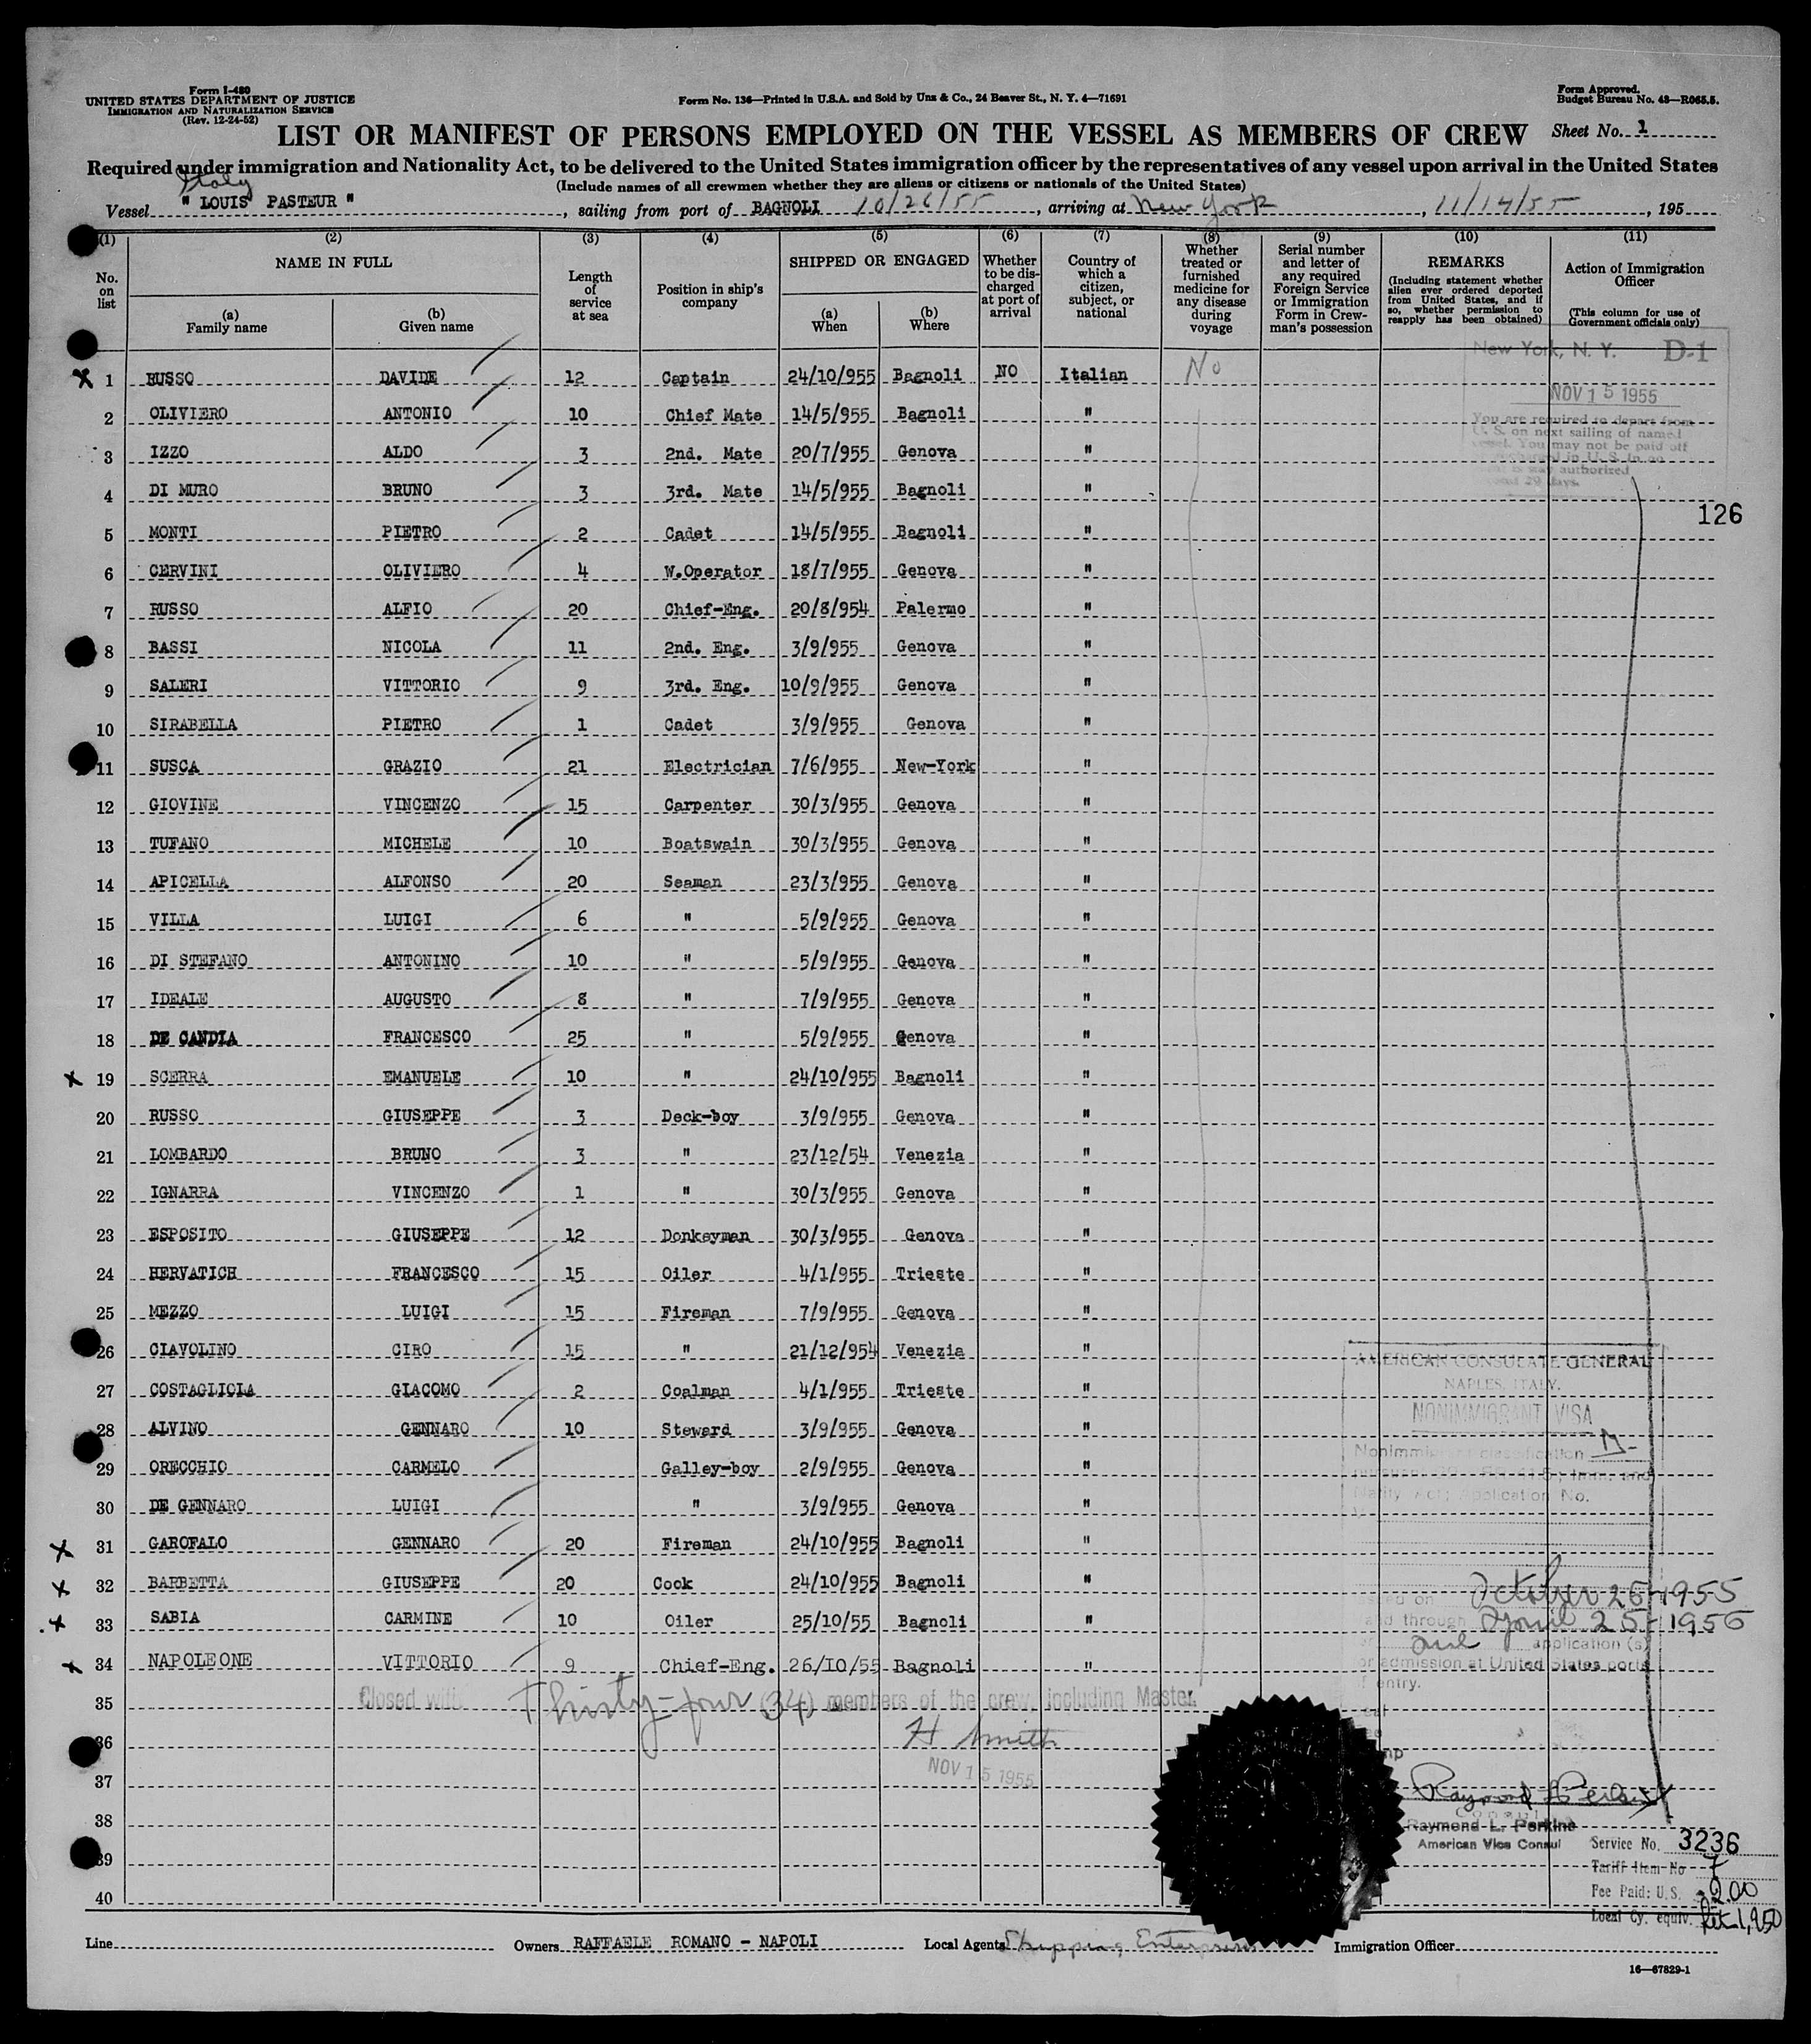 Form I-480
UNITED STATES DEPARTMENT OF JUSTICE
IMMIGRATION AND NATURALIZATION SERVICE
(Rev. 12-24-52)
Form No. 136—Printed in U.S.A. and Sold by Unz & Co., 24 Beaver St., N. Y. 4—71691
Form Approved.
Budget Bureau No. 43—R065.5.
LIST OR MANIFEST OF PERSONS EMPLOYED ON THE VESSEL AS MEMBERS OF CREW Sheet No. 1
Required under immigration and Nationality Act, to be delivered to the United States immigration officer by the representatives of any vessel upon arrival in the United States
(Include names of all crewmen whether they are aliens or citizens or nationals of the United States)
Italy
Vessel " LOUIS PASTEUR ", sailing from port of BAGNOLI 10/26/55, arriving at New York, 11/14/55, 195
(1) (2) (3) (4) (5) (6) (7) (8) (9) (10) (11)
No. on list
NAME IN FULL
(a) Family name
(b) Given name
Length of service at sea
Position in ship's company
SHIPPED OR ENGAGED
(a) When
(b) Where
Whether to be discharged at port of arrival
Country of which a citizen, subject, or national
Whether treated or furnished medicine for any disease during voyage
Serial number and letter of any required Foreign Service or Immigration Form in Crewman's possession
REMARKS
(Including statement whether alien ever ordered deported from United States, and if so, whether permission to reapply has been obtained)
Action of Immigration Officer
(This column for use of Government officials only)
New York, N. Y. D-1
NOV 15 1955
You are required to depart from
U. S. on next sailing of named
vessel. You may not be paid off
authorized
29 days.
126
X 1 RUSSO DAVIDE 12 Captain 24/10/955 Bagnoli NO Italian No
2 OLIVIERO ANTONIO 10 Chief Mate 14/5/955 Bagnoli "
3 IZZO ALDO 3 2nd. Mate 20/7/955 Genova "
4 DI MURO BRUNO 3 3rd. Mate 14/5/955 Bagnoli "
5 MONTI PIETRO 2 Cadet 14/5/955 Bagnoli "
6 CERVINI OLIVIERO 4 W.Operator 18/7/955 Genova "
7 RUSSO ALFIO 20 Chief-Eng. 20/8/954 Palermo "
8 BASSI NICOLA 11 2nd. Eng. 3/9/955 Genova "
9 SALERI VITTORIO 9 3rd. Eng. 10/9/955 Genova "
10 SIRABELLA PIETRO 1 Cadet 3/9/955 Genova "
11 SUSCA GRAZIO 21 Electrician 7/6/955 New-York "
12 GIOVINE VINCENZO 15 Carpenter 30/3/955 Genova "
13 TUFANO MICHELE 10 Boatswain 30/3/955 Genova "
14 APICELLA ALFONSO 20 Seaman 23/3/955 Genova "
15 VILLA LUIGI 6 " 5/9/955 Genova "
16 DI STEFANO ANTONINO 10 " 5/9/955 Genova "
17 IDEALE AUGUSTO 8 " 7/9/955 Genova "
18 DE CANDIA FRANCESCO 25 " 5/9/955 Genova "
X 19 SCERRA EMANUELE 10 " 24/10/955 Bagnoli "
20 RUSSO GIUSEPPE 3 Deck-boy 3/9/955 Genova "
21 LOMBARDO BRUNO 3 " 23/12/54 Venezia "
22 IGNARRA VINCENZO 1 " 30/3/955 Genova "
23 ESPOSITO GIUSEPPE 12 Donkeyman 30/3/955 Genova "
24 HERVATICH FRANCESCO 15 Oiler 4/1/955 Trieste "
25 MEZZO LUIGI 15 Fireman 7/9/955 Genova "
26 CIAVOLINO CIRO 15 " 21/12/954 Venezia "
27 COSTAGLIOLA GIACOMO 2 Coalman 4/1/955 Trieste "
28 ALVINO GENNARO 10 Steward 3/9/955 Genova "
29 ORECCHIO CARMELO Galley-boy 2/9/955 Genova "
30 DE GENNARO LUIGI " 3/9/955 Genova "
X 31 GAROFALO GENNARO 20 Fireman 24/10/955 Bagnoli "
X 32 BARBETTA GIUSEPPE 20 Cook 24/10/955 Bagnoli "
X 33 SABIA CARMINE 10 Oiler 25/10/55 Bagnoli "
X 34 NAPOLEONE VITTORIO 9 Chief-Eng. 26/IO/55 Bagnoli "
35 Closed with Thirty-four (34) members of the crew, including Master.
36 H Smith
NOV 15 1955
37
38
39
40
AMERICAN CONSULATE GENERAL
NAPLES, ITALY.
NONIMMIGRANT VISA
Nonimmigrant classification D
Imm. and
Natlty Act; Application No.
V
issued on October 26 1955
valid through April 25-1956
for one application (s)
for admission at United States ports
of entry.
Raymond L Perkins
Consul
Raymond L. Perkins
American Vice Consul
Service No. 3236
Tariff Item No 7
Fee Paid: U.S. 2.00
Local Cy. equiv. Lit 1,250
Line
Owners RAFFAELE ROMANO - NAPOLI
Local Agents Shipping Enterprises
Immigration Officer
16—67829-1